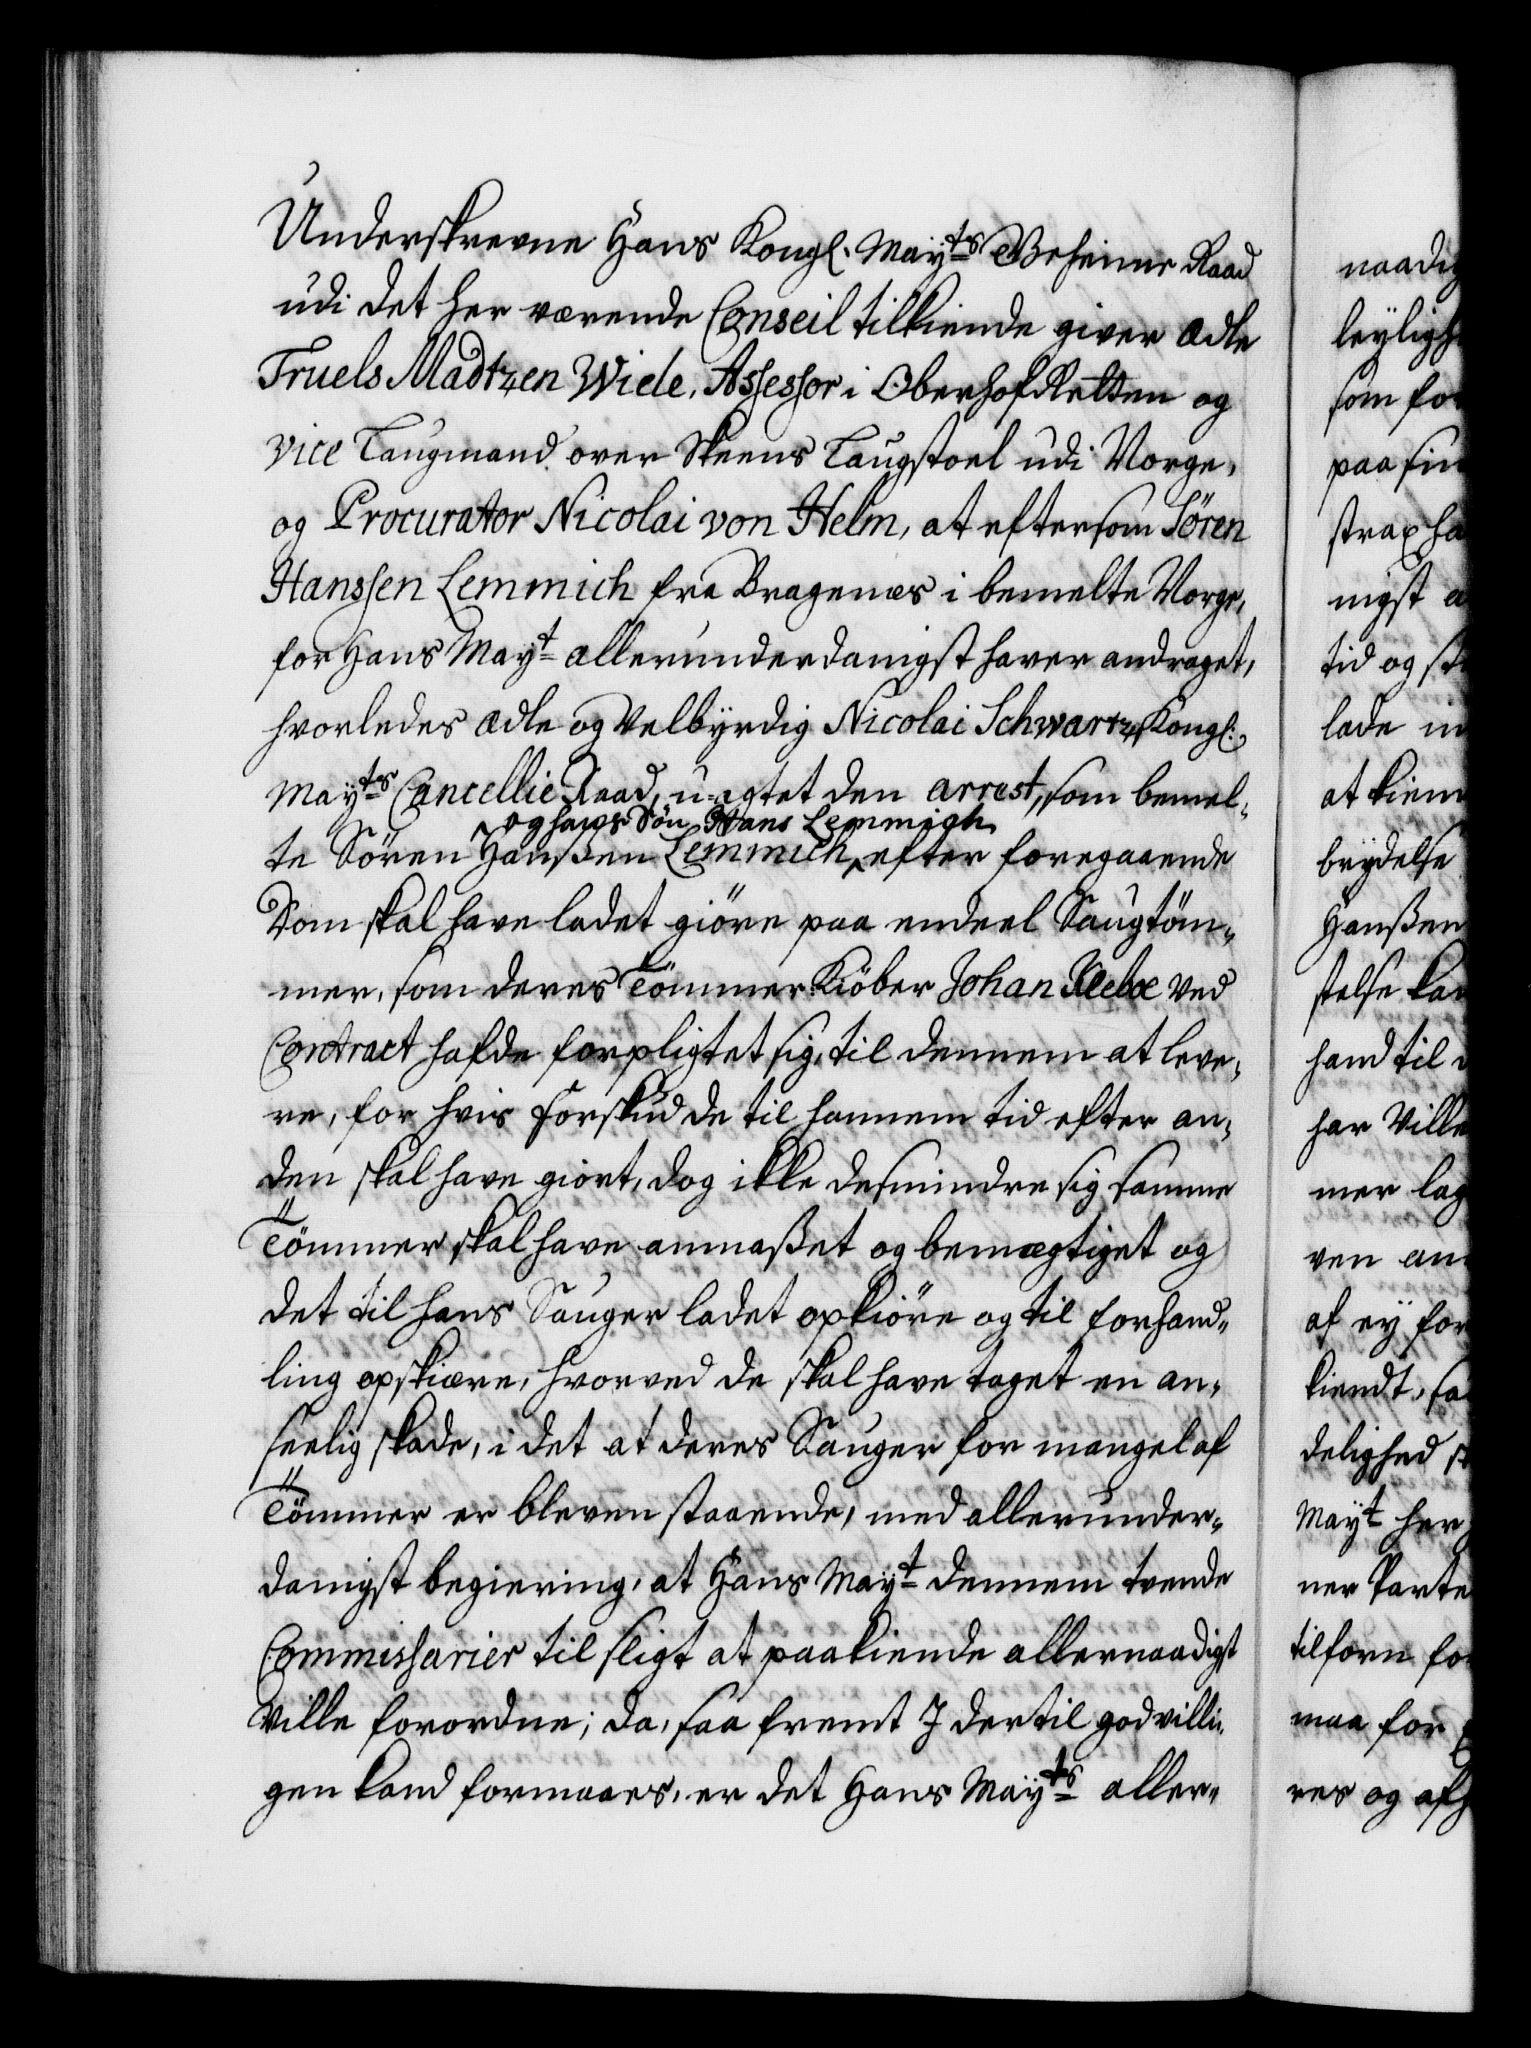 Underskrevne Hans Kongl. Mayts Geheime Raad
udi det her værende Conseil tilkiende giver ædle
Truels Madtzen Wiele, Assessor i OberhofRetten og
vice Laugmand over Skeens Laugstoel udi Norge,
og Procurator Nicolai von Helm, at eftersom Sören
Hanssen Lemmich fra Bragenæs i bemelte Norge,
for Hans Mayt allerunderdanigst haver andraget,
hvorledes ædle og Velbyrdig Nicolai Schwartz, Kongl:
Mayts Cancellie Raad, u-agtet den arrest, som bemel-
og hans Sön Hans Lemmich
te Sören Hanßen Lemmich efter foregaaende
Dom skal have ladet giöre paa endeel Saugtöm-
mer, som deres Tömmer Kiöber Johan Kleboe ved
Contract hafde forpligtet sig, til dennem at leve-
re, for hvis Forskud de til hannem tid efter an-
den skal have giort, dog ikke desmindre sig samme
Tömmer skal have anmaßet og bemægtiget og
det til hans Sauger ladet opkiöre og til forhand-
ling opskiære, hvorved de skal have taget en an-
seelig skade, i det at deres Sauger for mangel af
Tömmer er bleven staaende, med allerunder-
danigst begiering, at Hans Mayt dennem tvende
Commissarier til sligt at paakiende allernaadigst
ville forordne; da, saa fremt I dertil godvilli-
gen kand formaaes, er det Hans Mayts aller-
naadig
leyligh
som for
paa sin
strax ha
nigst a
tid og st
lade in
at kien
brydelse
Hanßen
stelse kan
hand til
har Ville
mer lag
ven an
af ey for
kiendt, sa
delighed s
Mayt her
ner Parte
tilforn fo
maa for
res og afh